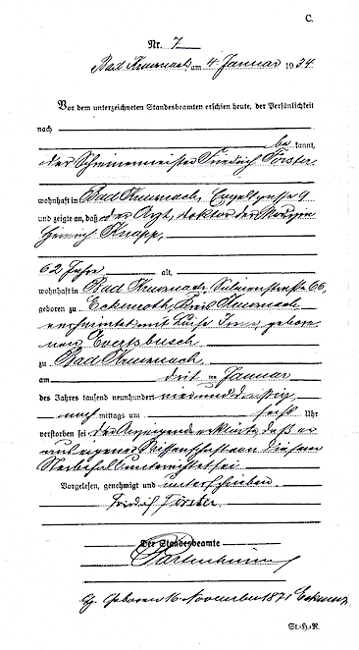 C.
Nr. 7
Bad Kreuznach am 4. Januar 1934
Vor dem unterzeichneten Standesbeamten erschien heute, der Persönlichkeit
nach
be kannt,
der Schreinermeister Friedrich Förster
wohnhaft in Bad Kreuznach,
und zeigte an, daß der Arzt, Doktor der Medizin
Heinrich Knapp,
62 Jahre alt,
wohnhaft in Bad Kreuznach, 66,
geboren zu Eckenroth, Kreis Kreuznach,
verheiratet mit Luise Irma gebore-
nen Evertsbusch
zu Bad Kreuznach,
am drit ten Januar
des Jahres tausend neunhundert vierunddreißig,
nach mittags um Uhr
verstorben sei. Der Anzeigende erklärte, daß er
aus eigener Wissenschaft von diesem
Sterbefall unterrichtet sei
Vorgelesen, genehmigt und unterschrieben.
Friedrich Förster
Der Standesbeamte
Geboren 16 November 1871
St. H. R.